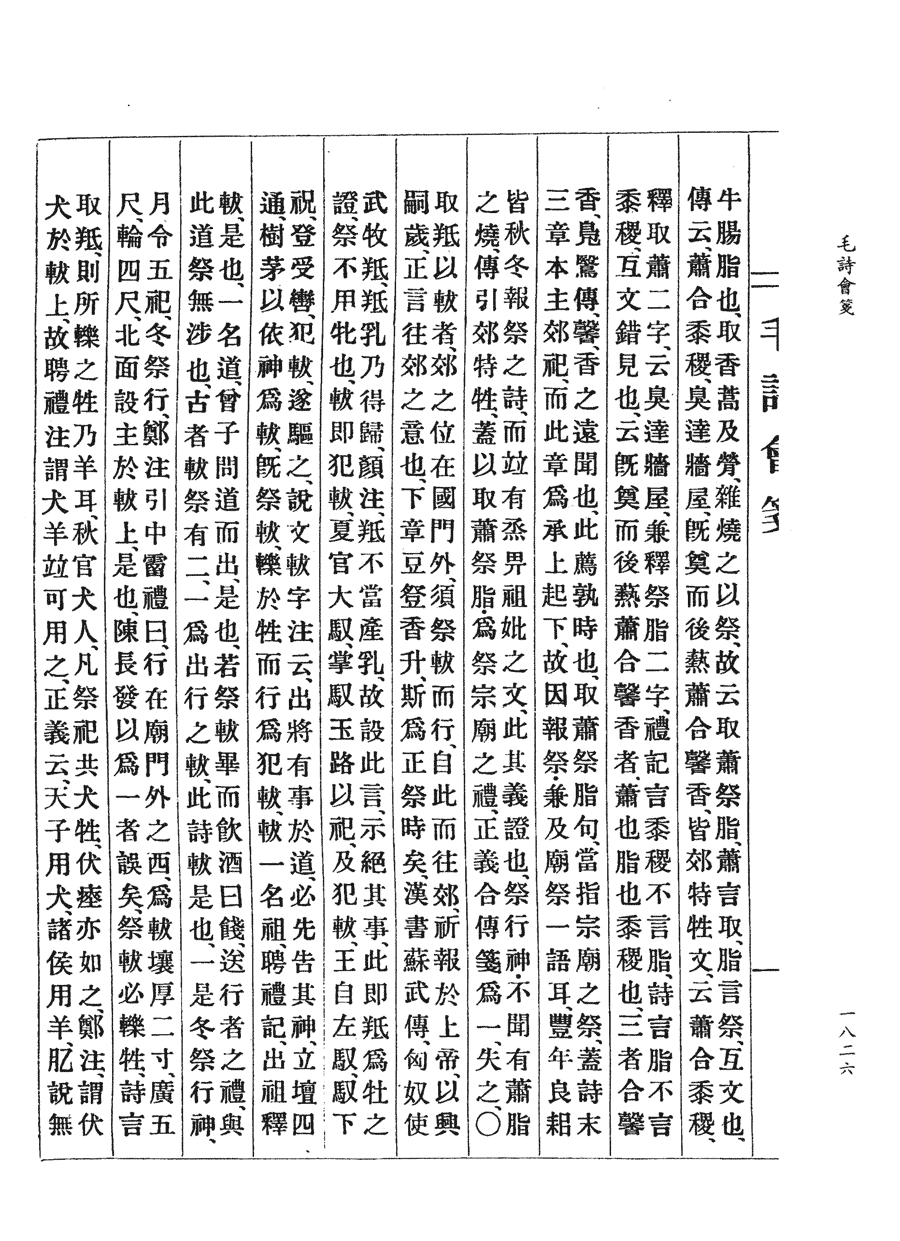 毛詩會箋
一八二六
毛詩會箋
牛腸脂也、取香蒿及膋、雜燒之以祭、故云取蕭祭脂、蕭言取、脂言祭、互文也、
傳云、蕭合黍稷、臭達牆屋、旣奠而後爇蕭合馨香、皆郊特牲文、云蕭合黍稷、
釋取蕭二字、云臭達牆屋、兼釋祭脂二字、禮記言黍稷不言脂、詩言脂不言
黍稷、互文錯見也、云旣奠而後爇蕭合馨香者、蕭也脂也黍稷也、三者合馨
香、鳧鷖傳、馨、香之遠聞也、此薦孰時也、取蕭祭脂句、當指宗廟之祭、蓋詩末
三章本主郊祀、而此章爲承上起下、故因報祭・兼及廟祭一語耳、豐年良耜
皆秋冬報祭之詩、而竝有烝畀祖妣之文、此其義證也、祭行神・不聞有蕭脂
之燒、傳引郊特牲、蓋以取蕭祭脂・爲祭宗廟之禮、正義合傳箋爲一、失之、〇
取羝以軷者、郊之位在國門外、須祭軷而行、自此而往郊、祈報於上帝、以興
嗣歲、正言往郊之意也、下章豆登香升、斯爲正祭時矣、漢書蘇武傳、匈奴使
武牧羝、羝乳乃得歸、顏注、羝不當產乳、故設此言、示絕其事、此即羝爲牡之
證、祭不用牝也、軷即犯軷、夏官大馭、掌馭玉路以祀、及犯軷、王自左馭、馭下
祝、登受轡、犯軷、遂驅之、說文軷字注云、出將有事於道、必先告其神、立壇四
通、樹茅以依神爲軷、旣祭軷、轢於牲而行爲犯軷、軷一名祖、聘禮記、出祖釋
軷、是也、一名道、曾子問道而出、是也、若祭軷畢而飲酒曰餞、送行者之禮、與
此道祭無涉也、古者軷祭有二、一爲出行之軷、此詩軷是也、一是冬祭行神、
月令五祀、冬祭行、鄭注引中霤禮曰、行在廟門外之西、爲軷壤厚二寸、廣五
尺、輪四尺、北面設主於軷上、是也、陳長發以爲一者誤矣、祭軷必轢牲、詩言
取羝、則所轢之牲乃羊耳、秋官犬人、凡祭祀共犬牲、伏瘞亦如之、鄭注、謂伏
犬於軷上、故聘禮注謂犬羊竝可用之、正義云、天子用犬、諸侯用羊、肊說無